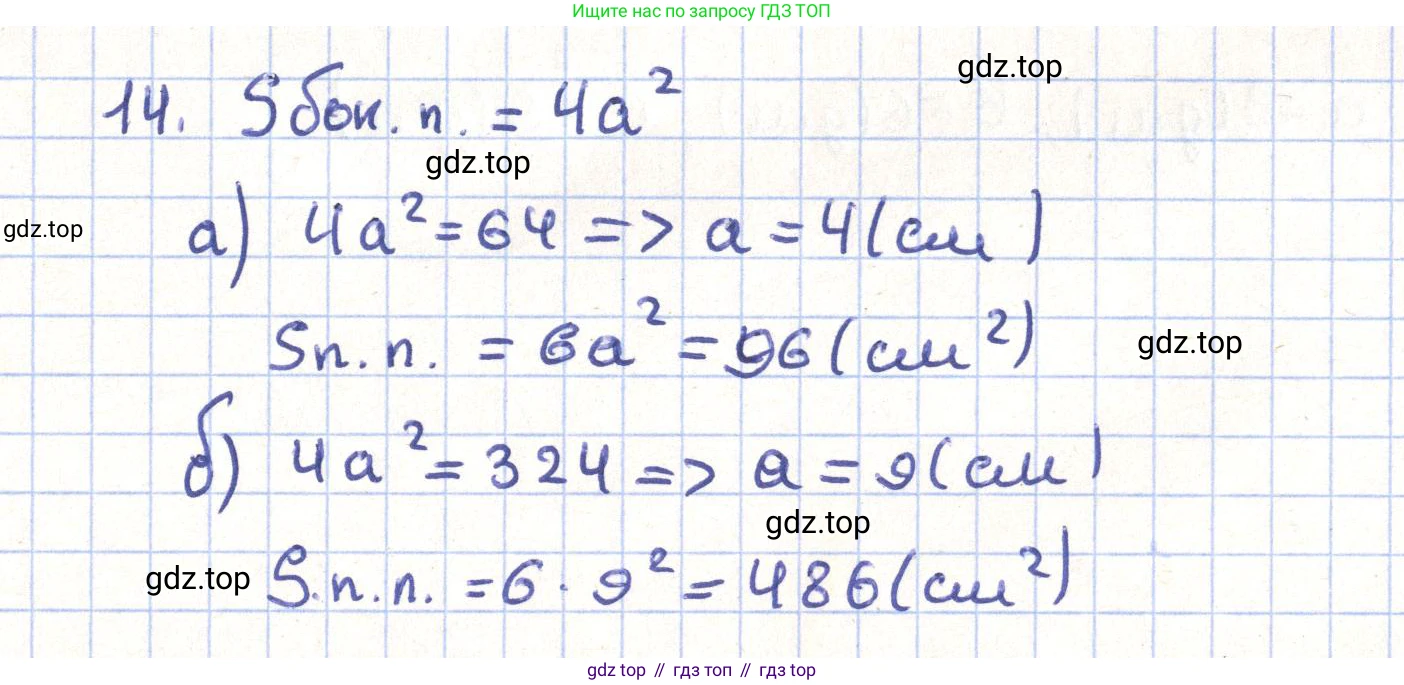 Ищите нас по запросу ГДЗ ТОП
gdz.top
14. Sбок. п. = 4a²
gdz.top
gdz.top
а) 4a² = 64 => a = 4 (см)
Sп. п. = 6a² = 96 (см²)
gdz.top
б) 4a² = 324 => a = 9 (см)
gdz.top
gdz.top
S.п.п. = 6 · 9² = 486 (см²)
gdz top // гдз топ // гдз top